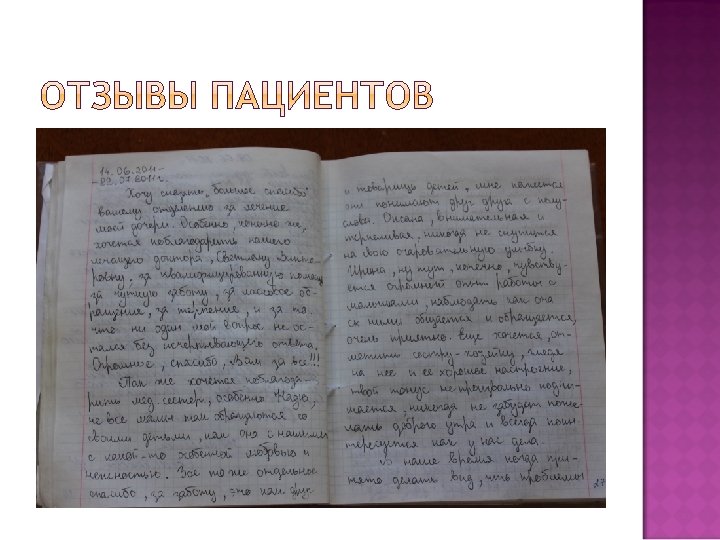 ОТЗЫВЫ ПАЦИЕНТОВ
14.06.2011-
-22.07.2011г.
Хочу сказать "большое спасибо"
вашему отделению за лечение
моей дочери. Особенно, конечно же,
хочется поблагодарить нашего
лечащего доктора, Светлану Викто-
ровну, за квалифицированную помощь,
за чуткую заботу, за ласковое об-
ращение, за терпение, и за то,
что ни один мой вопрос не ос-
тался без исчерпывающего ответа.
Огромное, спасибо, Вам за все!!!
Так же хочется поблагода-
рить мед. сестер, особенно Надю,
не все мамы там обращаются со
своими детьми, как она с нашими
с какой-то особенной любовью и
нежностью. Все то же отдельное
спасибо, за заботу, она как друг
и товарищ детей, мне кажется
они понимают друг друга с полу-
слова. Оксана, внимательная и
терпеливая, никогда не скупится
на свою очаровательную улыбку.
Ирина, ну тут, конечно, чувству-
ется огромный опыт работы с
малышами, наблюдать как она
с ними общается и обращается,
очень приятно. Еще хочется, от-
метить сестру-хозяйку, глядя
на нее и ее хорошее настроение,
твой тонус непроизвольно подни-
мается, никогда не забудет поже-
лать доброго утра и всегда поин-
тересуется как у нас дела.
В наше время когда при-
нято делать вид, что проблемы
27